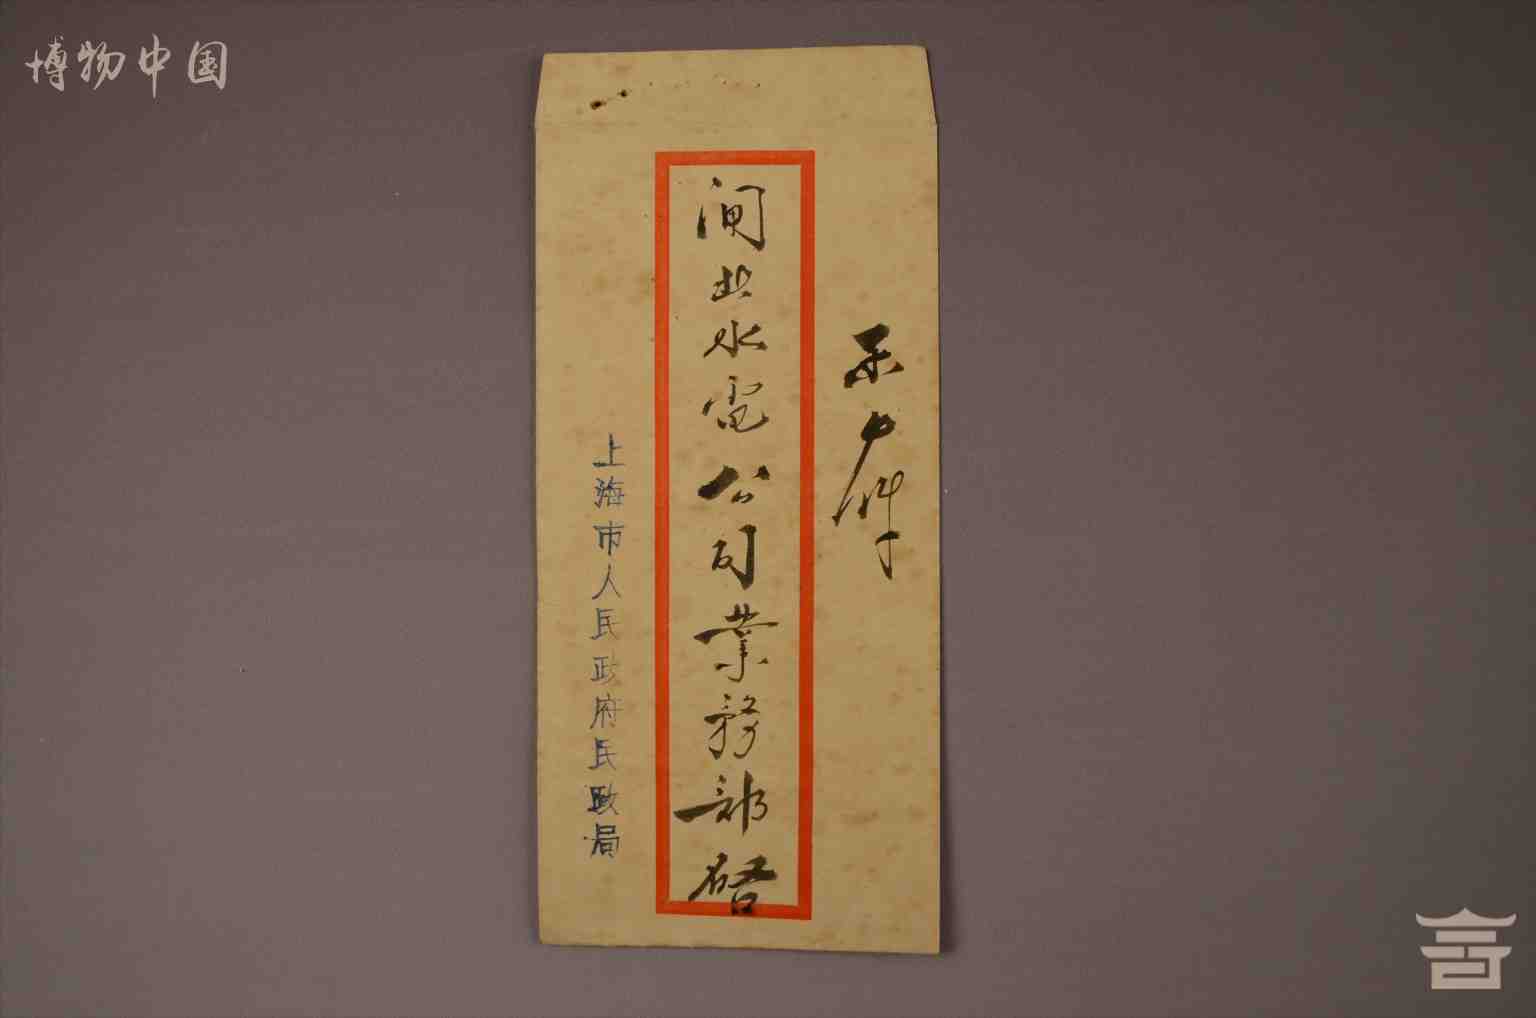 博物中国
闸北水電公司業務部啓
上海市人民政府民政局